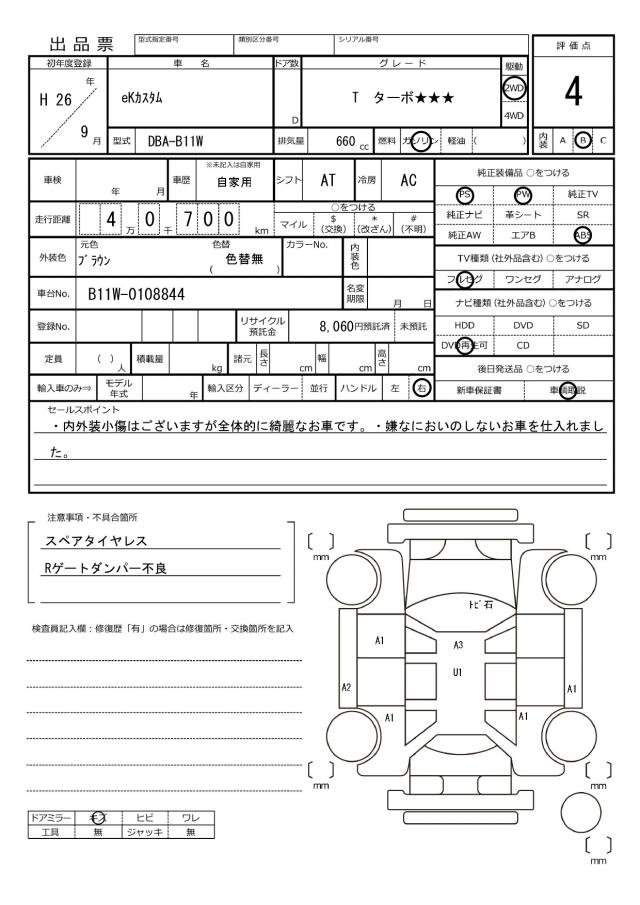 出品票
型式指定番号 類別区分番号 シリアル番号
初年度登録 車名 ドア数 グレード 駆動 評価点
H 26 年 9 月
eKカスタム
D
T ターボ★★★
2WD
4WD
4
型式 DBA-B11W 排気量 660 cc 燃料 ガソリン 軽油 ( ) 内装 A B C
車検 年 月 車歴 ※未記入は自家用 自家用 シフト AT 冷房 AC
純正装備品 ○をつける
PS PW 純正TV
純正ナビ 革シート SR
純正AW エアB ABS
走行距離 4 万 0 千 7 0 0 km
○をつける
マイル $(交換) *(改ざん) #(不明)
外装色 元色 ブラウン 色替 色替無 ( ) カラーNo. 内装色
TV種類 (社外品含む) ○をつける
フルセグ ワンセグ アナログ
車台No. B11W-0108844 名変期限 月 日
ナビ種類 (社外品含む) ○をつける
HDD DVD SD
DVD再生可 CD
登録No. リサイクル預託金 8,060円預託済 未預託
定員 ( )人 積載量 kg 諸元 長さ cm 幅 cm 高さ cm
後日発送品 ○をつける
新車保証書 車輌取説
輸入車のみ⇒ モデル年式 年 輸入区分 ディーラー 並行 ハンドル 左 右
セールスポイント
・内外装小傷はございますが全体的に綺麗なお車です。・嫌なにおいのしないお車を仕入れまし
た。
注意事項・不具合箇所
スペアタイヤレス
Rゲートダンパー不良
検査員記入欄：修復歴「有」の場合は修復箇所・交換箇所を記入
〔 〕 〔 〕
mm mm
トビ石
A1 A3
U1
A2 A1
A1 A1
〔 〕 〔 〕
mm mm
〔 〕
mm
ドアミラー キズ ヒビ ワレ
工具 無 ジャッキ 無